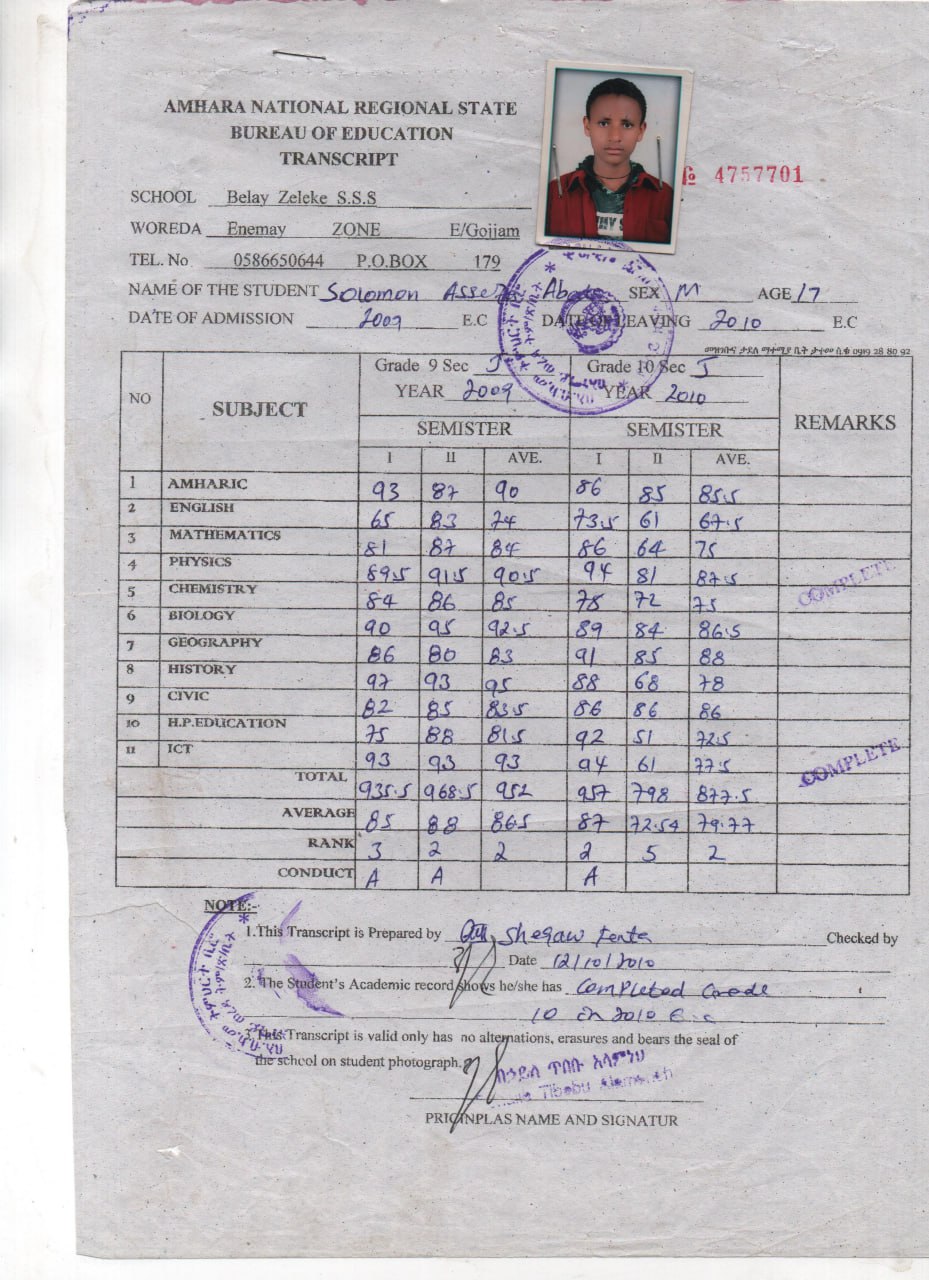 AMHARA NATIONAL REGIONAL STATE
BUREAU OF EDUCATION
TRANSCRIPT
№ 4757701
SCHOOL Belay Zeleke S.S.S
WOREDA Enemay ZONE E/Gojjam
TEL. No 0586650644 P.O.BOX 179
NAME OF THE STUDENT Solomon SEX M AGE 17
DATE OF ADMISSION 2009 E.C DATE OF LEAVING 2010 E.C
መዝገቡና ታደለ ማተሚያ ቤት ታተመ ስቁ 0919 28 80 92
NO SUBJECT Grade 9 Sec J Grade 10 Sec J REMARKS
YEAR 2009 YEAR 2010
SEMISTER SEMISTER
I II AVE. I II AVE.
1 AMHARIC 93 87 90 86 85 85.5
2 ENGLISH 65 83 74 73.5 61 67.5
3 MATHEMATICS 81 87 84 86 64 75
4 PHYSICS 89.5 91.5 90.5 94 81 87.5
5 CHEMISTRY 84 86 85 78 72 75
6 BIOLOGY 90 95 92.5 89 84 86.5
7 GEOGRAPHY 86 80 83 91 85 88
8 HISTORY 97 93 95 88 68 78
9 CIVIC 82 85 83.5 86 86 86
10 H.P.EDUCATION 75 88 81.5 92 51 72.5
11 ICT 93 93 93 94 61 77.5
COMPLETE
COMPLETE
TOTAL 935.5 968.5 952 957 798 877.5
AVERAGE 85 88 86.5 87 72.54 79.77
RANK 3 2 2 2 5 2
CONDUCT A A A
NOTE:-
1.This Transcript is Prepared by Shegaw Checked by
Date 12/10/2010
2. The Student's Academic record shows he/she has Completed Grade
10 in 2010 E.C
3.This Transcript is valid only has no alternations, erasures and bears the seal of
the school on student photograph.
በኃይለ ጥበቡ አላምነህ
Tibebu
PRICINPLAS NAME AND SIGNATUR